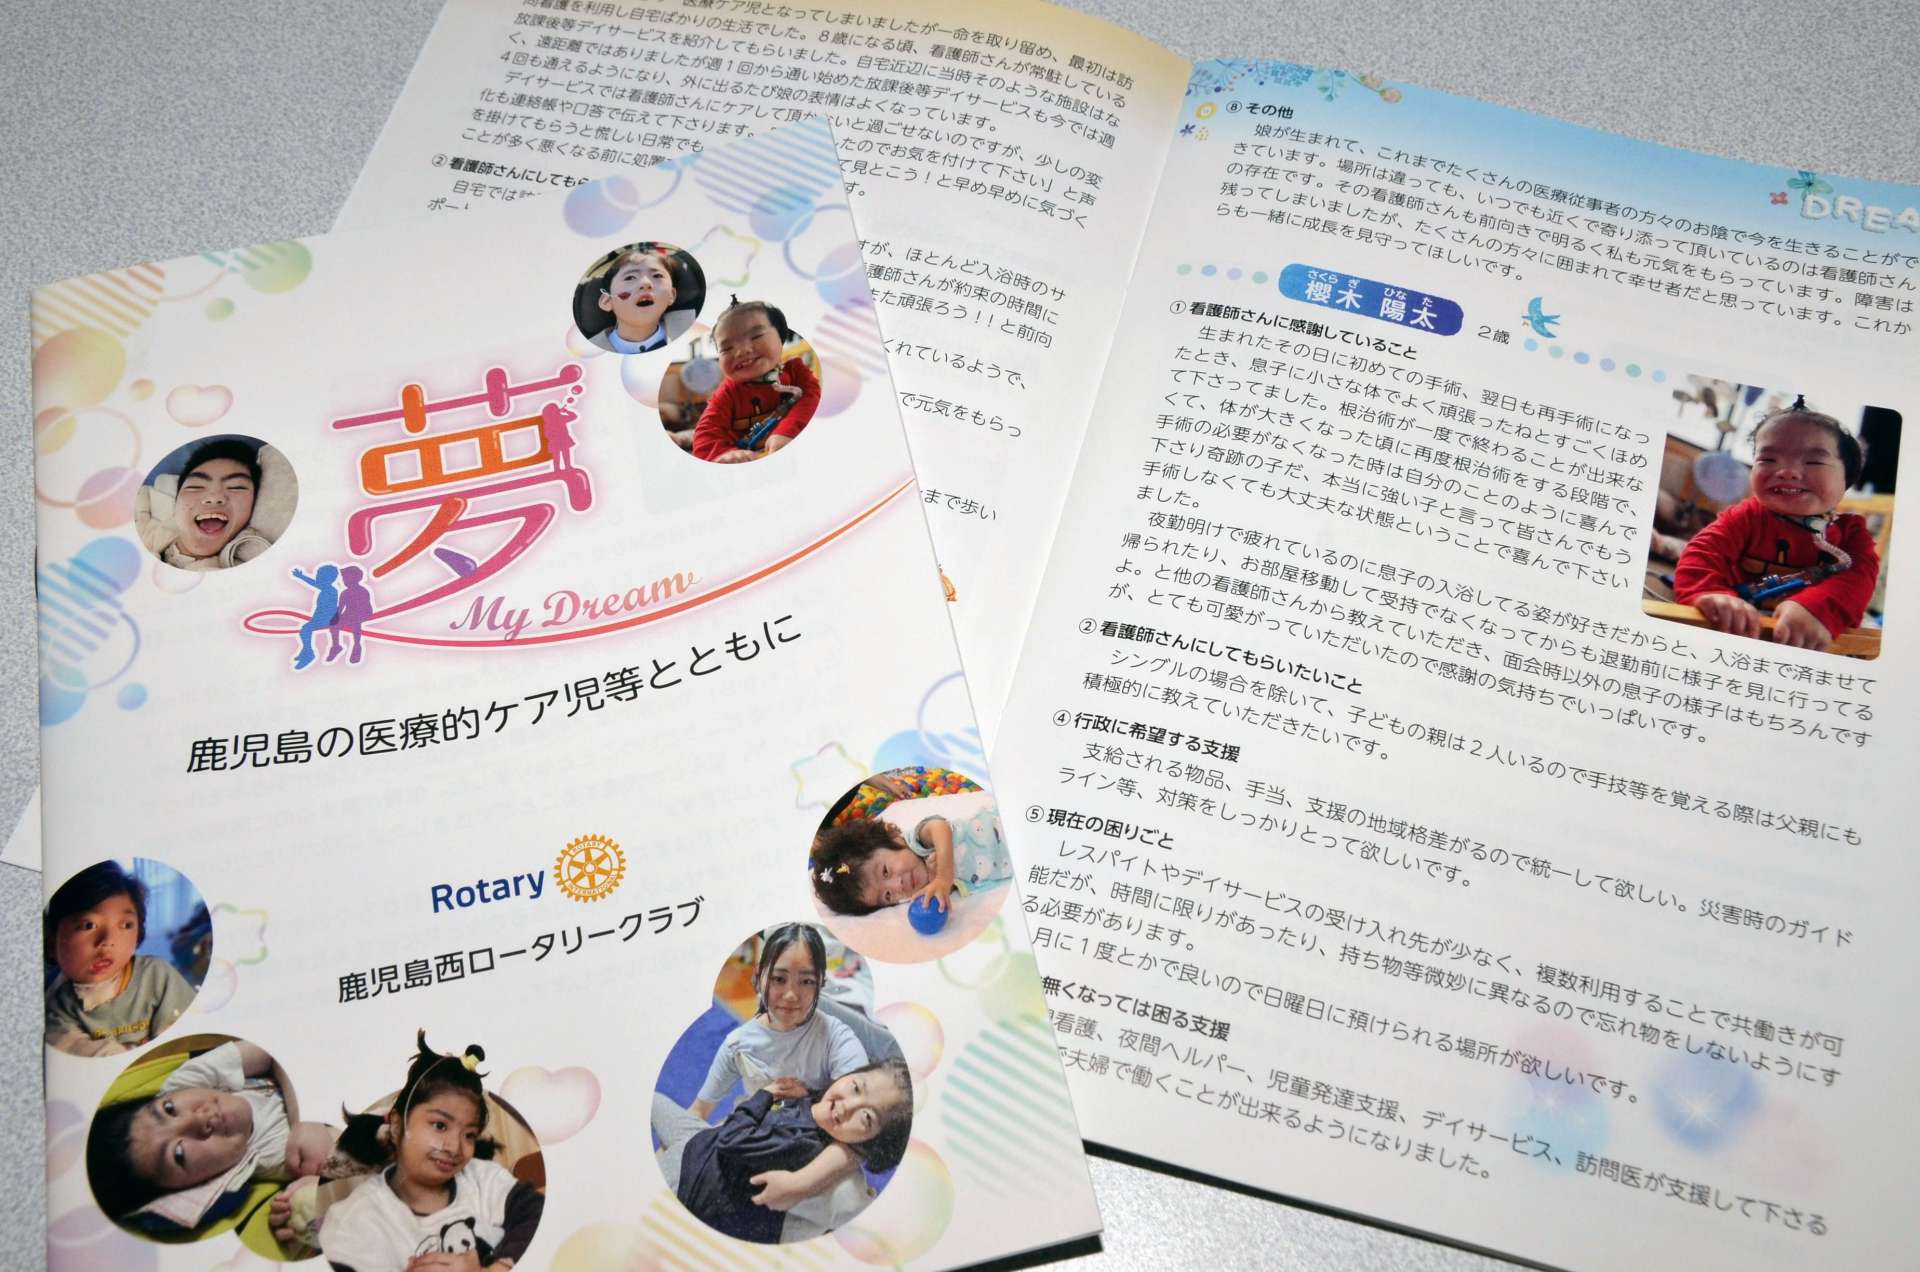 医療ケア児となってしまいましたが一命を取り留め、最初は訪
問看護を利用し自宅ばかりの生活でした。8歳になる頃、看護師さんが常駐している
放課後等デイサービスを紹介してもらいました。自宅近辺に当時そのような施設はな
く、遠距離ではありましたが週1回から通い始めた放課後等デイサービスも今では週
4回も通えるようになり、外に出るたび娘の表情はよくなっています。
デイサービスでは看護師さんにケアして頂かないと過ごせないのですが、少しの変
化も連絡帳や口答で伝えて下さります。
したのでお気を付けて下さい」と声
を掛けてもらうと慌しい日常でも
て見とこう！と早め早めに気づく
ことが多く悪くなる前に処置
す。
②看護師さんにしてもら
自宅では
ポー
すが、ほとんど入浴時のサ
看護師さんが約束の時間に
また頑張ろう！！と前向
くれているようで、
で元気をもらっ
まで歩い
夢
My Dream
鹿児島の医療的ケア児等とともに
Rotary
ROTARY
INTERNATIONAL
鹿児島西ロータリークラブ
DREA
⑧その他
娘が生まれて、これまでたくさんの医療従事者の方々のお陰で今を生きることがで
きています。場所は違っても、いつでも近くで寄り添って頂いているのは看護師さん
の存在です。その看護師さんも前向きで明るく私も元気をもらっています。障害は
残ってしまいましたが、たくさんの方々に囲まれて幸せ者だと思っています。これか
らも一緒に成長を見守ってほしいです。
さくら ぎ ひな た
櫻木 陽太
2歳
①看護師さんに感謝していること
生まれたその日に初めての手術、翌日も再手術になっ
たとき、息子に小さな体でよく頑張ったねとすごくほめ
て下さってました。根治術が一度で終わることが出来な
くて、体が大きくなった頃に再度根治術をする段階で、
手術の必要がなくなった時は自分のことのように喜んで
下さり奇跡の子だ、本当に強い子と言って皆さんでもう
手術しなくても大丈夫な状態ということで喜んで下さい
ました。
夜勤明けで疲れているのに息子の入浴してる姿が好きだからと、入浴まで済ませて
帰られたり、お部屋移動して受持でなくなってからも退勤前に様子を見に行ってる
よ。と他の看護師さんから教えていただき、面会時以外の息子の様子はもちろんです
が、とても可愛がっていただいたので感謝の気持ちでいっぱいです。
②看護師さんにしてもらいたいこと
シングルの場合を除いて、子どもの親は2人いるので手技等を覚える際は父親にも
積極的に教えていただきたいです。
④行政に希望する支援
支給される物品、手当、支援の地域格差がるので統一して欲しい。災害時のガイド
ライン等、対策をしっかりとって欲しいです。
⑤現在の困りごと
レスパイトやデイサービスの受け入れ先が少なく、複数利用することで共働きが可
能だが、時間に限りがあったり、持ち物等微妙に異なるので忘れ物をしないようにす
る必要があります。
月に1度とかで良いので日曜日に預けられる場所が欲しいです。
無くなっては困る支援
看護、夜間ヘルパー、児童発達支援、デイサービス、訪問医が支援して下さる
で夫婦で働くことが出来るようになりました。